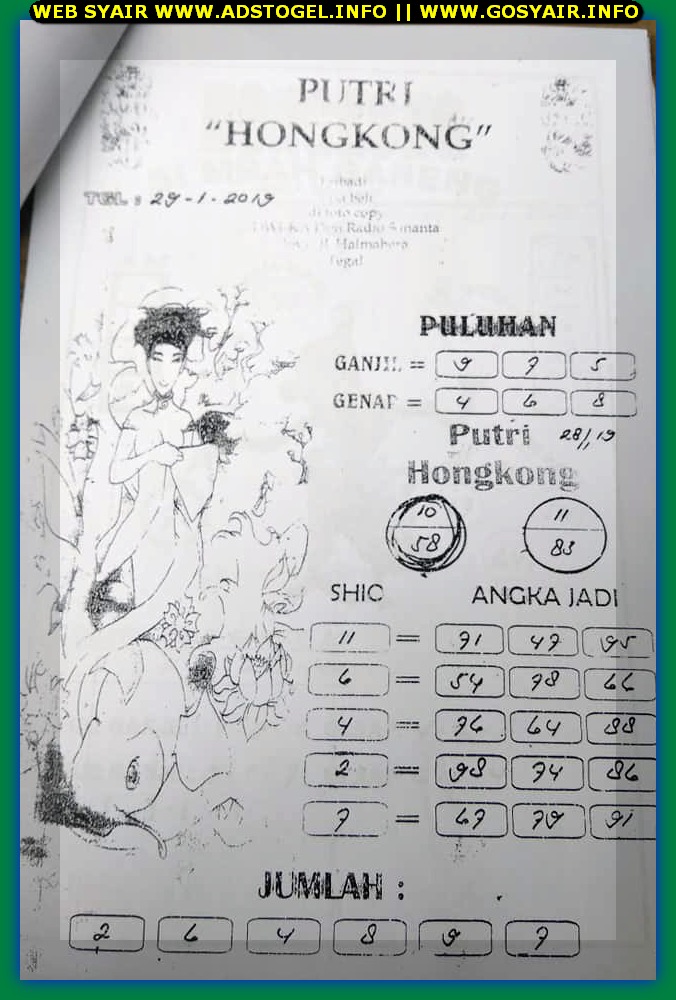 WEB SYAIR WWW.ADSTOGEL.INFO || WWW.GOSYAIR.INFO
PUTRI
"HONGKONG"
TGL : 29-1-2019
di foto copy
Radio
Jl. Halmahera
Tegal
PULUHAN
GANJIL = 9 7 5
GENAP = 4 6 8
Putri 28/1,19
Hongkong
10 11
58 83
SHIO ANGKA JADI
11 = 71 47 95
6 = 54 78 66
4 = 76 64 88
2 = 98 74 86
7 = 67 79 91
JUMLAH :
2 6 4 8 9 7